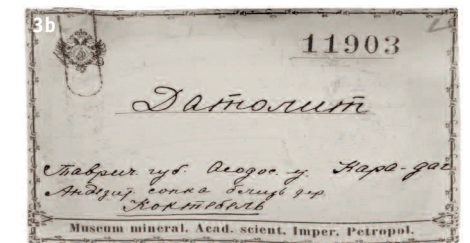 3b
11903
Датолит
Таврич. губ. Феодос. у. Кара-даг
Андезит сопка близь дер.
Коктебель
Museum mineral. Acad. scient. Imper. Petropol.